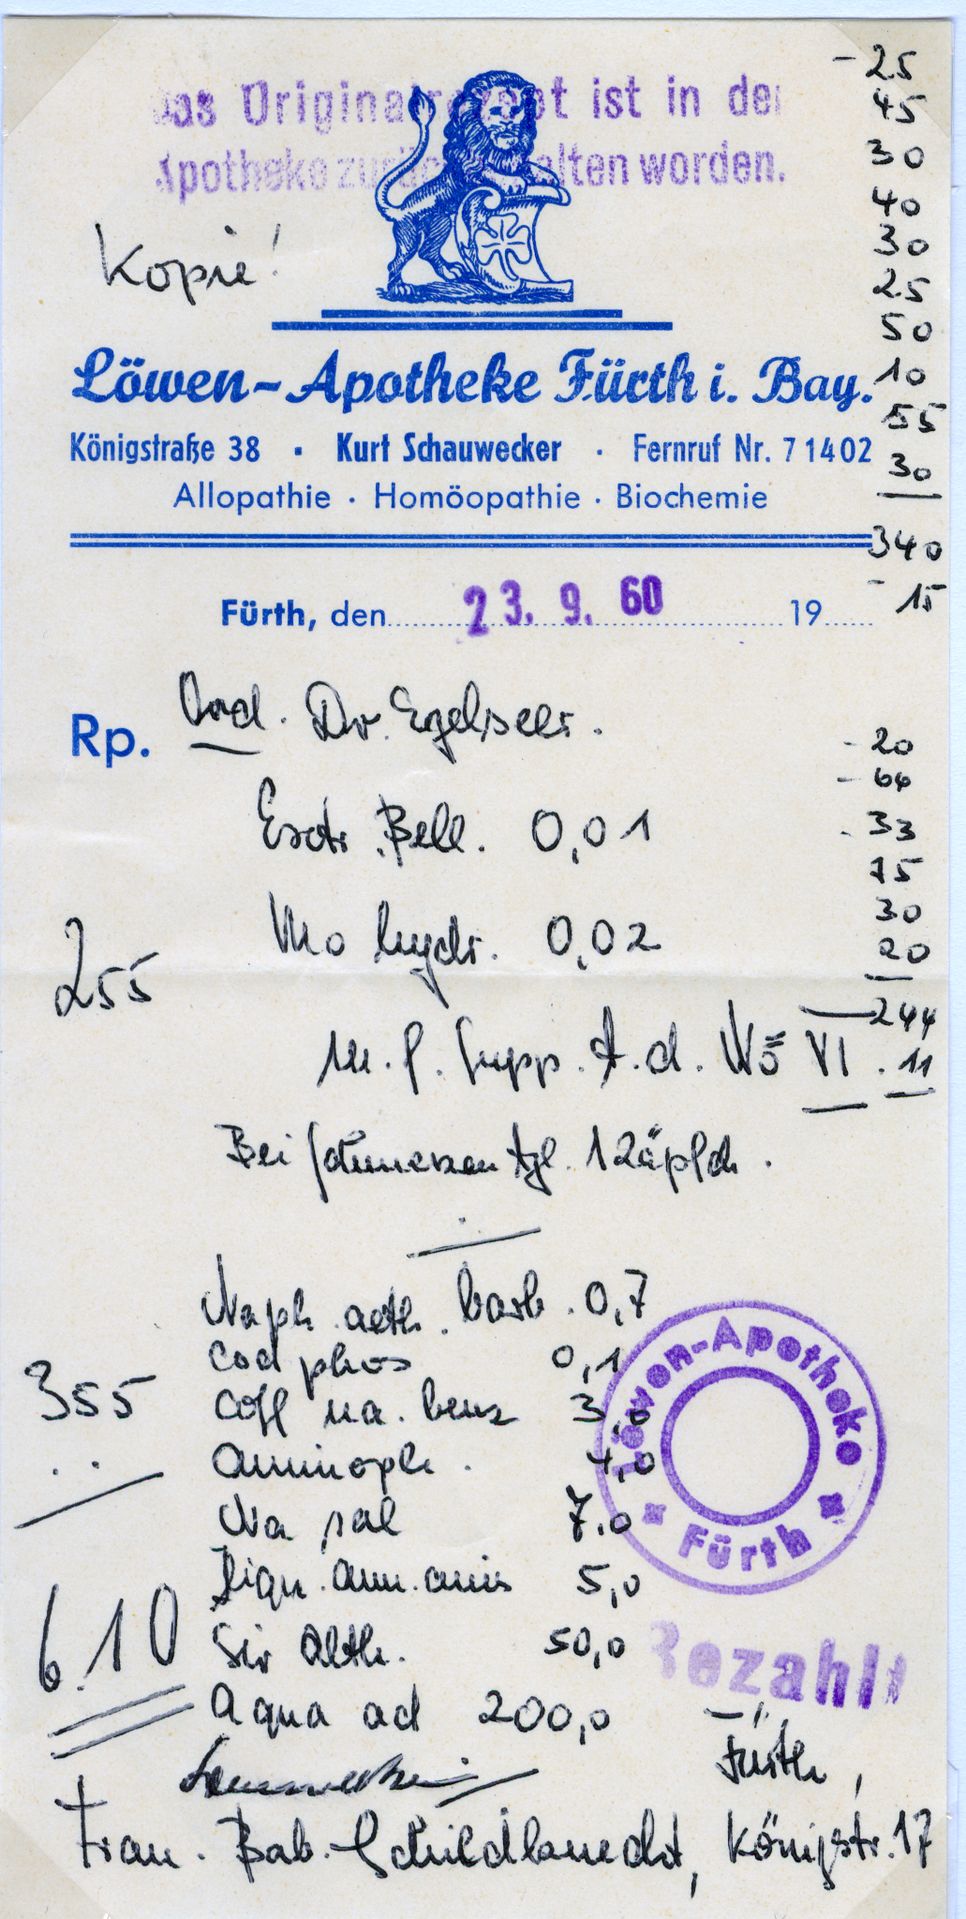 Das Originalrezept ist in der
Apotheke zurückbehalten worden.
Kopie!
Löwen-Apotheke Fürth i. Bay.
Königstraße 38 · Kurt Schauwecker · Fernruf Nr. 7 1402
Allopathie · Homöopathie · Biochemie
- 25
45
30
40
30
25
50
10
55
30
340
- 15
Fürth, den 23. 9. 60 19
Rp. Ord. Dr. Egelseer.
Extr. Bell. 0,01
Mo hydr. 0,02
M. f. Supp. t. d. No VI
Bei Schmerzen tgl. 1 Zäpfch.
- 20
- 66
- 33
75
30
20
244
. 11
255
Naph. aeth. barb. 0,7
Cod phos 0,1
Coff na. benz 3,0
Aminoph. 4,0
Na sal 7,0
Liqu. amm. anis 5,0
Sir Alth. 50,0
Aqua ad 200,0
355
6.10
Löwen-Apotheke
Fürth
Bezahlt
Fürth,
Frau. Bab. Schildknecht, Königstr. 17